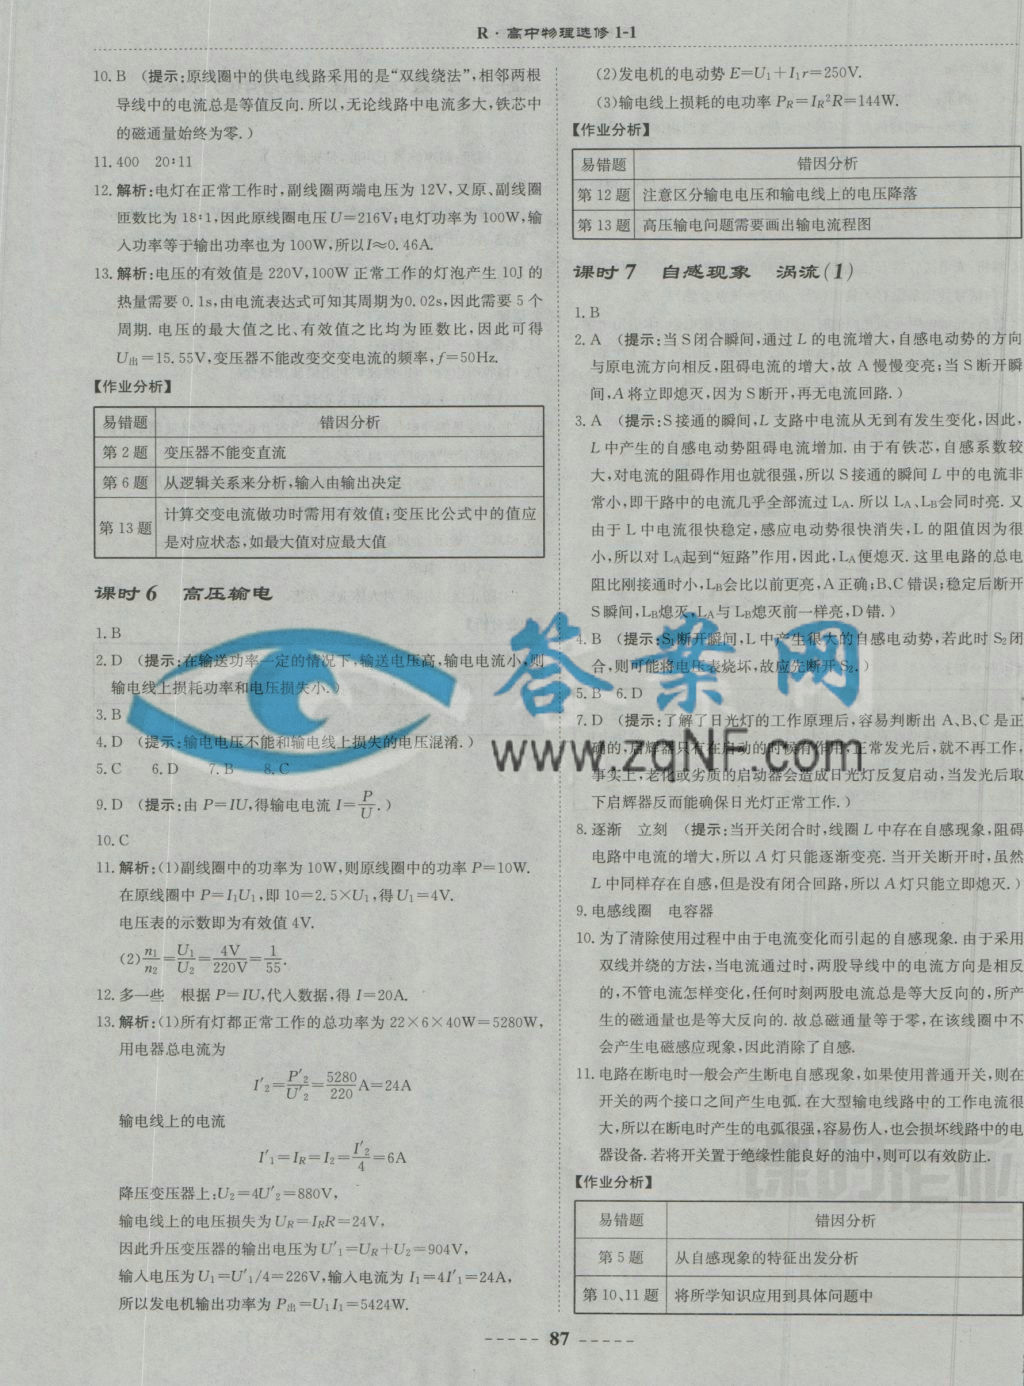 R·高中物理选修1-1
10. B （提示:原线圈中的供电线路采用的是“双线绕法”,相邻两根
导线中的电流总是等值反向.所以,无论线路中电流多大,铁芯中
的磁通量始终为零.）
11. 400　20∶11
12. 解析:电灯在正常工作时,副线圈两端电压为 12V,又原、副线圈
匝数比为 18∶1,因此原线圈电压U=216V;电灯功率为 100W,输
入功率等于输出功率也为 100W,所以I≈0.46A.
13. 解析:电压的有效值是 220V,100W 正常工作的灯泡产生 10J 的
热量需要 0.1s,由电流表达式可知其周期为0.02s,因此需要 5 个
周期. 电压的最大值之比、有效值之比均为匝数比,因此可得
U出=15.55V,变压器不能改变交变电流的频率,f=50Hz.
【作业分析】
易错题　错因分析
第 2 题　变压器不能变直流
第 6 题　从逻辑关系来分析,输入由输出决定
第 13 题　计算交变电流做功时需用有效值;变压比公式中的值应
是对应状态,如最大值对应最大值
课时6　高压输电
1. B
2. D （提示:在输送功率一定的情况下,输送电压高,输电电流小,则
输电线上损耗功率和电压损失小.）
3. B
4. D （提示:输电电压不能和输电线上损失的电压混淆.）
5. C　6. D　7. B　8. C
9. D （提示:由 P=IU,得输电电流 I=P/U.）
10. C
11. 解析:(1)副线圈中的功率为 10W,则原线圈中的功率 P=10W.
在原线圈中 P=I₁U₁,即 10=2.5×U₁,得U₁=4V.
电压表的示数即为有效值 4V.
(2)n₁/n₂=U₁/U₂=4V/220V=1/55.
12. 多一些　根据 P=IU,代入数据,得 I=20A.
13. 解析:(1)所有灯都正常工作的总功率为 22×6×40W=5280W,
用电器总电流为
I′₂=P′₂/U′₂=5280/220A=24A
输电线上的电流
I′₁=IR=I₂=I′₂/4=6A
降压变压器上:U₂=4U′₂=880V,
输电线上的电压损失为UR=IRR=24V,
因此升压变压器的输出电压为U′₁=UR+U₂=904V,
输入电压为U₁=U′₁/4=226V,输入电流为 I₁=4I′₁=24A,
所以发电机输出功率为 P出=U₁I₁=5424W.
(2)发电机的电动势 E=U₁+I₁r=250V.
(3)输电线上损耗的电功率 PR=IR²R=144W.
【作业分析】
易错题　错因分析
第 12 题　注意区分输电电压和输电线上的电压降落
第 13 题　高压输电问题需要画出输电流程图
课时7　自感现象　涡流(1)
1. B
2. A （提示:当 S闭合瞬间,通过 L 的电流增大,自感电动势的方向
与原电流方向相反,阻碍电流的增大,故 A 慢慢变亮;当 S断开瞬
间,A 将立即熄灭,因为 S断开,再无电流回路.）
3. A （提示:S接通的瞬间,L 支路中电流从无到有发生变化,因此,
L 中产生的自感电动势阻碍电流增加. 由于有铁芯,自感系数较
大,对电流的阻碍作用也就很强,所以 S接通的瞬间 L 中的电流非
常小,即干路中的电流几乎全部流过 LA. 所以 LA、LB会同时亮. 又
由于 L 中电流很快稳定,感应电动势很快消失,L 的阻值因为很
小,所以对 LA起到“短路”作用,因此,LA便熄灭. 这里电路的总电
阻比刚接通时小,LB会比以前更亮,A 正确;B、C 错误;稳定后断开
S瞬间,LB熄灭,LA与 LB熄灭前一样亮,D错.）
4. B （提示:S₁断开瞬间,L中产生很大的自感电动势,若此时 S₂闭
合,则可能将电压表烧坏,故应先断开S₂.）
5. B　6. D
7. D （提示:了解了日光灯的工作原理后,容易判断出 A、B、C 是正
确的,启辉器只有在启动的时候有作用,正常发光后,就不再工作,
事实上,老化或劣质的启动器会造成日光灯反复启动,当发光后取
下启辉器反而能确保日光灯正常工作.）
8. 逐渐　立刻 （提示:当开关闭合时,线圈 L 中存在自感现象,阻碍
电路中电流的增大,所以 A 灯只能逐渐变亮. 当开关断开时,虽然
L 中同样存在自感,但是没有闭合回路,所以 A 灯只能立即熄灭.）
9. 电感线圈　电容器
10. 为了清除使用过程中由于电流变化而引起的自感现象. 由于采用
双线并绕的方法,当电流通过时,两股导线中的电流方向是相反
的,不管电流怎样变化,任何时刻两股电流总是等大反向的,所产
生的磁通量也是等大反向的. 故总磁通量等于零,在该线圈中不
会产生电磁感应现象,因此消除了自感.
11. 电路在断电时一般会产生断电自感现象,如果使用普通开关,则在
开关的两个接口之间产生电弧. 在大型输电线路中的工作电流很
大,所以在断电时产生的电弧很强,容易伤人,也会损坏线路中的电
器设备. 若将开关置于绝缘性能良好的油中,则可以有效防止.
【作业分析】
易错题　错因分析
第 5 题　从自感现象的特征出发分析
第 10、11 题　将所学知识应用到具体问题中
答案网
www.zqNF.com
87